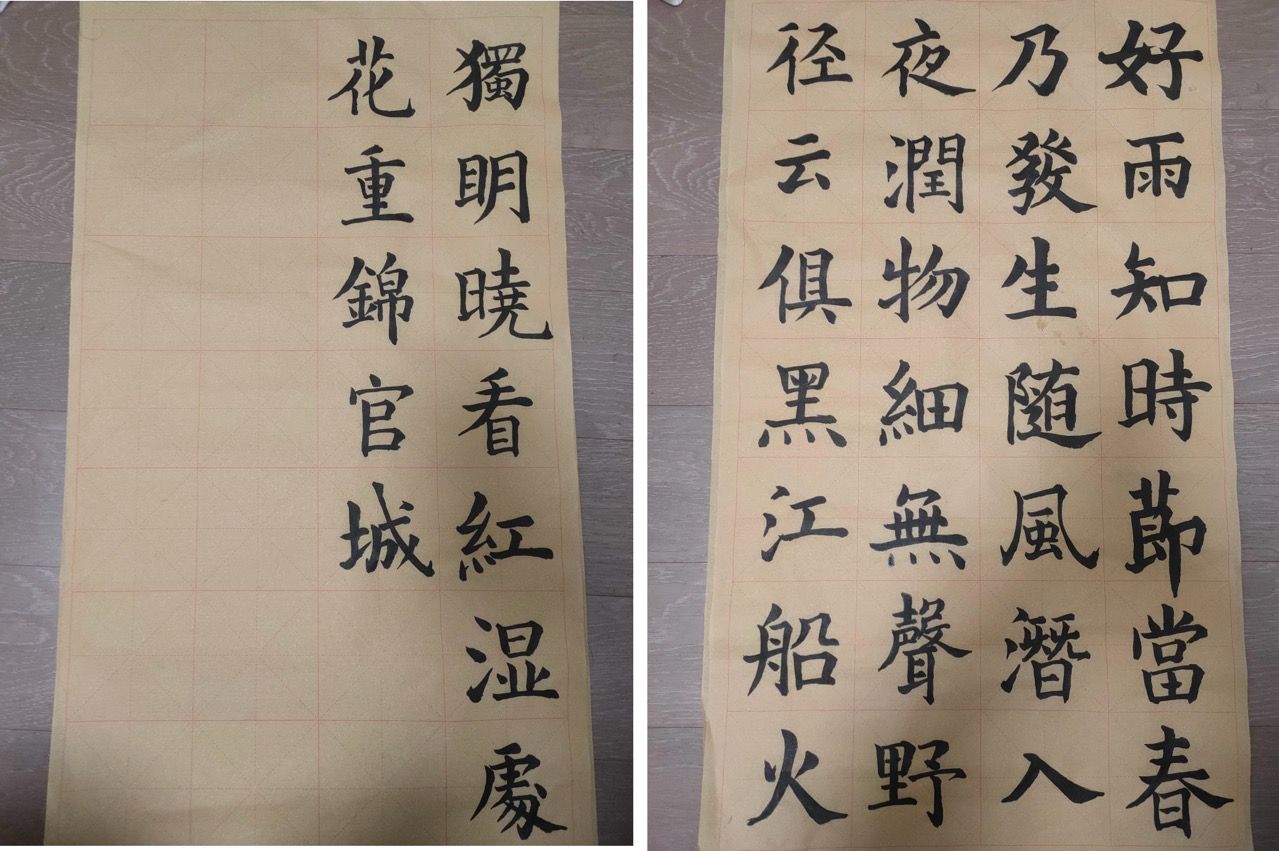 好雨知時節當春
乃發生随風潛入
夜潤物細無聲野
径云俱黑江船火
獨明曉看紅湿處
花重錦官城